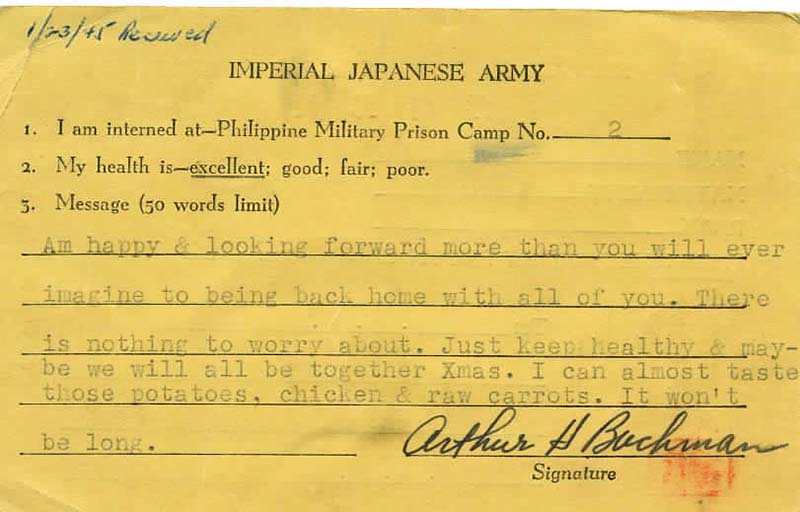 1/23/45 Received
IMPERIAL JAPANESE ARMY
1. I am interned at—Philippine Military Prison Camp No. 2
2. My health is—excellent; good; fair; poor.
3. Message (50 words limit)
Am happy & looking forward more than you will ever
imagine to being back home with all of you. There
is nothing to worry about. Just keep healthy & may-
be we will all be together Xmas. I can almost taste
those potatoes, chicken & raw carrots. It won't
be long.
Arthur H Bachman
Signature